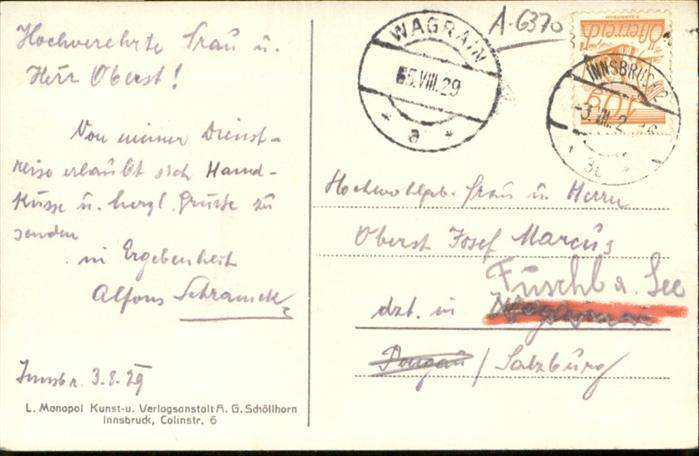 Hochverehrte Frau u.
Herr Oberst!
Von meiner Dienst-
reise erlaubt sich Hand-
küsse u. herzl. Grüsse zu
senden
in Ergebenheit
Alfons
Innsbr. 3.8.29
L. Monopol Kunst-u. Verlagsanstalt A. G. Schöllhorn
Innsbruck, Colinstr. 6
WAGRAIN
-5.VIII.29
* a *
A.6370
Österreich
10g
INNSBRUCK
-3.VIII.2
Hochwohlgeb. Frau u. Herrn
Oberst Josef Marcus
Fuschl a. See
dzt. in Wagrain
Pongau / Salzburg